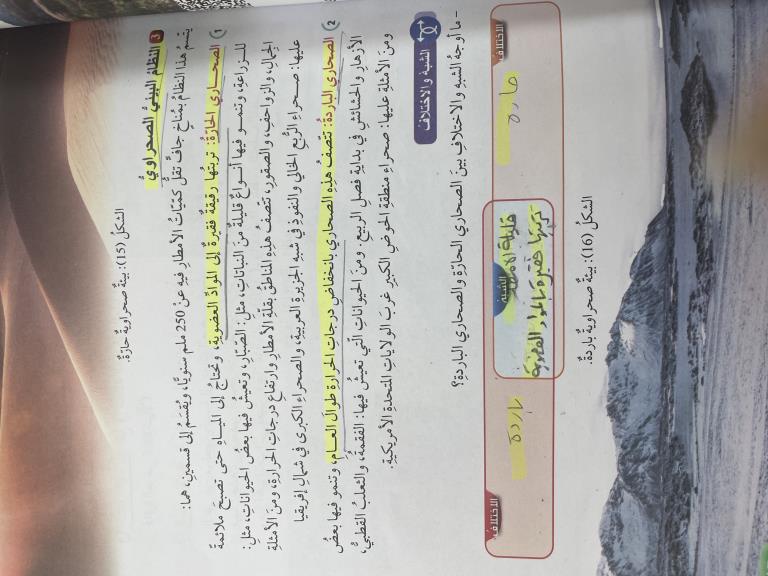 الشكلُ (15): بيئةٌ صحراويةٌ حارّةٌ.
3 النظامُ البيئيُّ الصحراويُّ
يتّسمُ هذا النظامُ بمُناخٍ جافٍّ تقلُّ كمّيّاتُ الأمطارِ فيهِ عنْ 250 ملم سنويًّا، ويُقسَمُ إلى قسمينِ، هما:
1 الصحـاري الحارّةُ: تربتُها رقيقةٌ فقيرةٌ إلى الموادِّ العضويةِ، وتحتاجُ إلى المياهِ حتى تصبحَ ملائمةً
للـزراعةِ، وتنمـو فيها أنـواعٌ قليلةٌ منَ النباتاتِ، مثلُ: الصبّارِ، وتعيشُ فيها بعضُ الحيواناتِ، مثلُ:
الجِمالِ، والزواحفِ، والصقورِ، تتّصفُ هذهِ المناطقُ بقلّةِ الأمطارِ وارتفاعِ درجاتِ الحرارةِ، ومنَ الأمثلةِ
عليها: صحـراءُ الرُّبعِ الخالي والنفودِ في شبهِ الجزيرةِ العربيةِ، والصحراءِ الكبرى في شمالِ إفريقيا
2 الصحاري الباردةُ: تتّصفُ هذهِ الصحاري بانخفاضِ درجاتِ الحرارةِ طوالَ العـامِ، وتنمو فيها بعضُ
الأزهارِ والحشائشِ في بدايةِ فصلِ الربيعِ. ومنَ الحيواناتِ التي تعيشُ فيها: الفقمةُ، والثعلبُ القطبيُّ،
ومنَ الأمثلةِ عليها: صحراءُ منطقةِ الحوضِ الكبيرِ غربَ الولاياتِ المتحدةِ الأمريكيةِ.
الشبهُ والاختلافُ
- ما أوجهُ الشبهِ والاختلافِ بينَ الصحاري الحارّةِ والصحاري الباردةِ؟
الاختلاف
الشبه
الاختلاف
حارة
قليلة الأمطار
تربتها فقيرة بالمواد العضوية
باردة
الشكلُ (16): بيئةٌ صحراويةٌ باردةٌ.